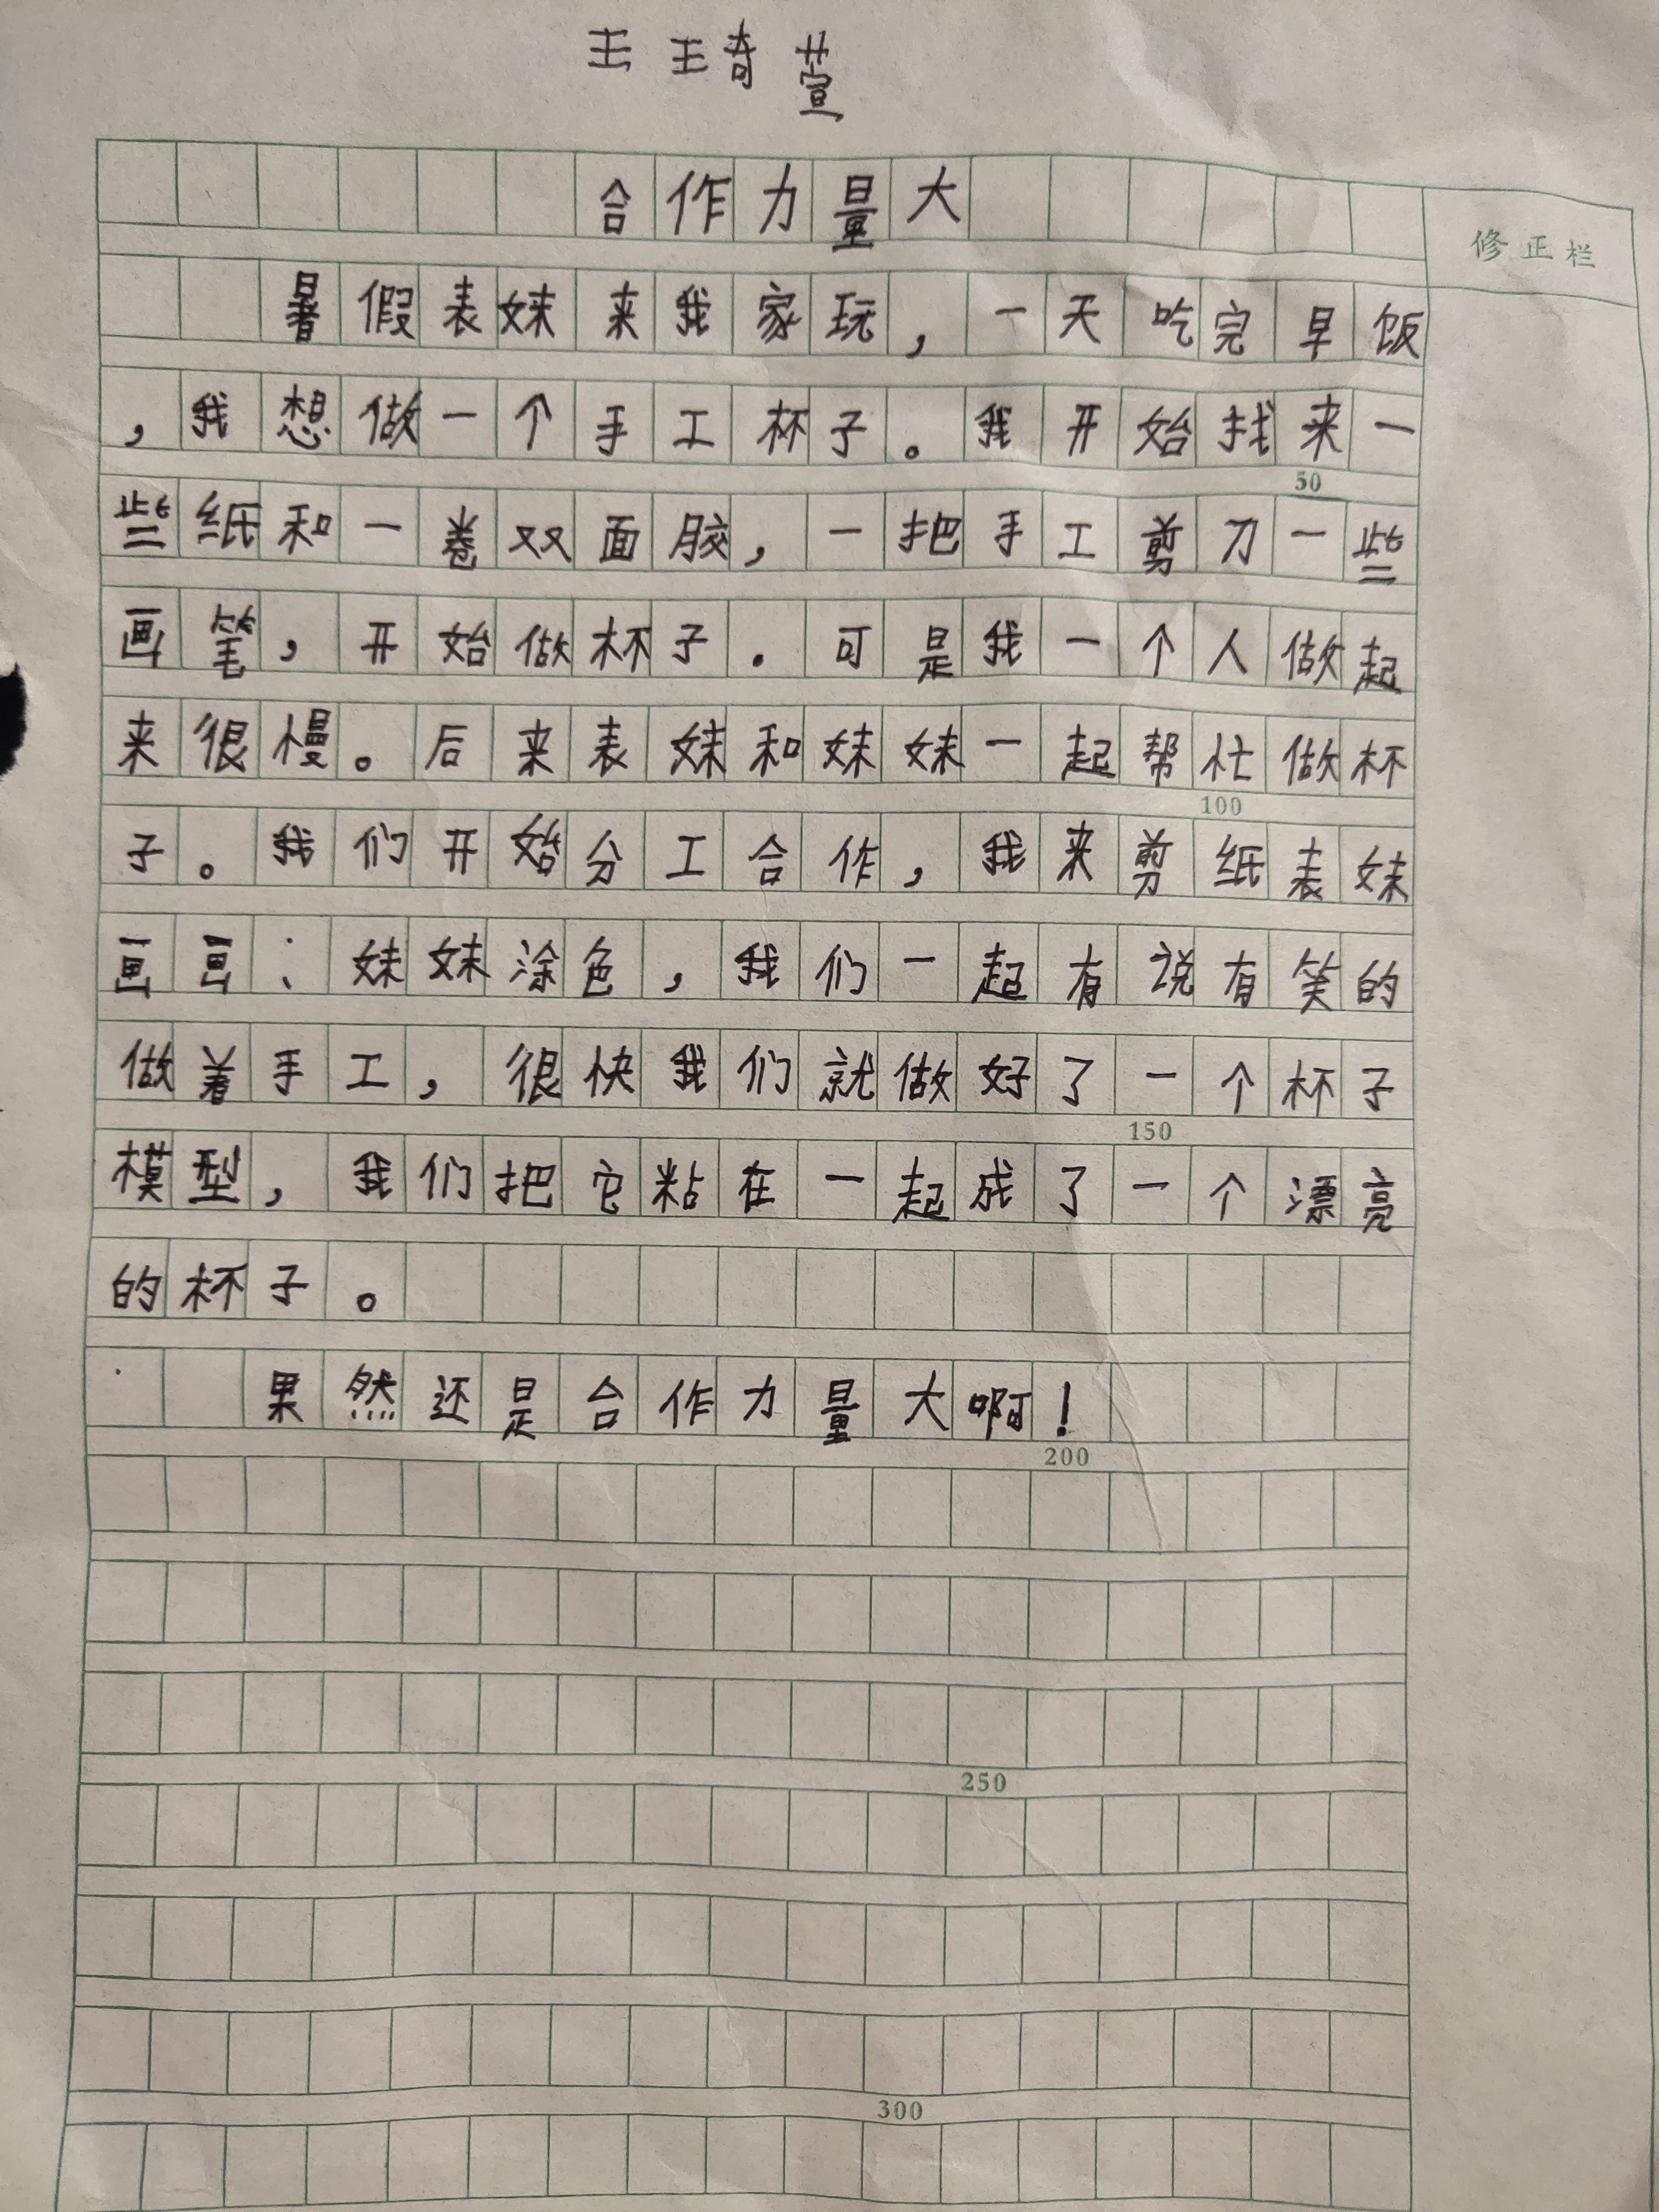 王琦萱
合作力量大
修正栏
暑假表妹来我家玩，一天吃完早饭
，我想做一个手工杯子。我开始找来一
50
些纸和一卷双面胶，一把手工剪刀一些
画笔，开始做杯子．可是我一个人做起
来很慢。后来表妹和妹妹一起帮忙做杯
100
子。我们开始分工合作，我来剪纸表妹
画画；妹妹涂色，我们一起有说有笑的
做着手工，很快我们就做好了一个杯子
150
模型，我们把它粘在一起成了一个漂亮
的杯子。
果然还是合作力量大啊！
200
250
300